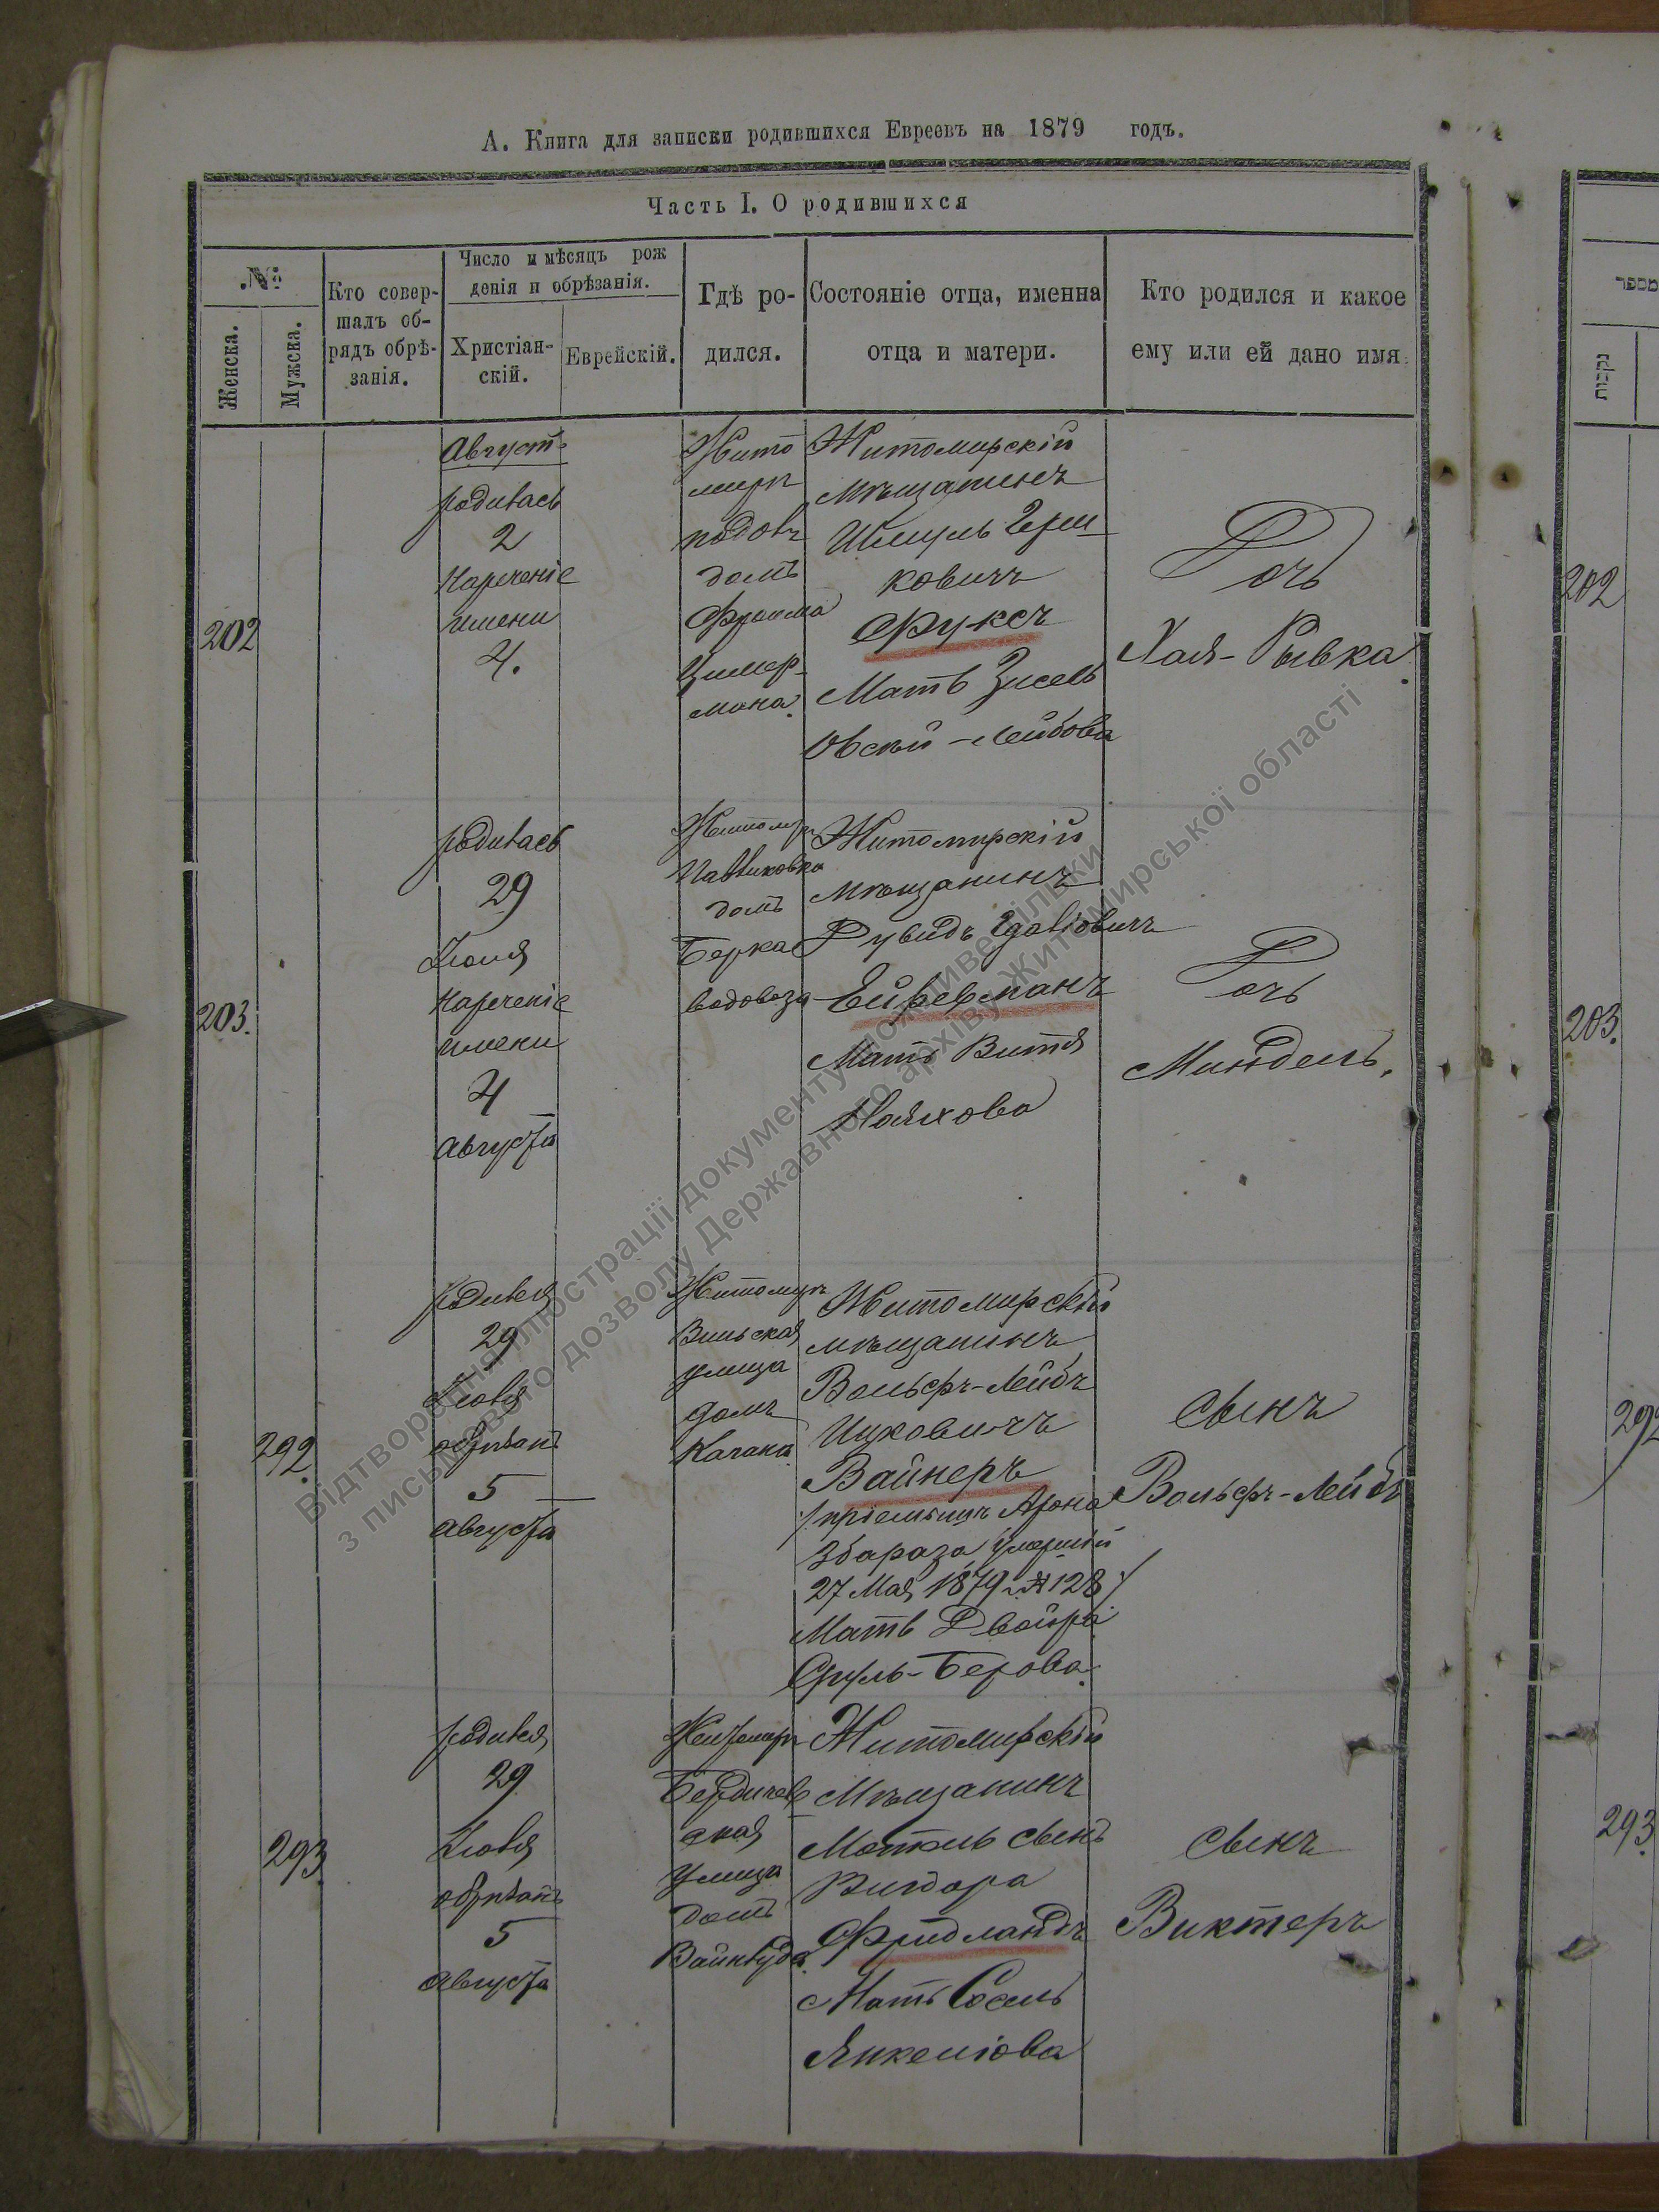 А. Книга для записки родившихся Евреевъ на 1879 годъ.
Часть I. О родившихся
№
Женска.
Мужска.
Кто совер-
шалъ об-
рядъ обрѣ-
занія.
Число и мѣсяцъ рож
денія и обрѣзанія.
Христіан-
скій.
Еврейскій.
Гдѣ ро-
дился.
Состояніе отца, именна
отца и матери.
Кто родился и какое
ему или ей дано имя.
202
Августъ
родилась
2
Нареченіе
имени
4.
Жито
миръ
домъ
Фроима
Цимер-
мана.
Житомирскій
Мѣщанинъ
Шмуль Герш
ковичъ
Фуксъ
Мать Зисель
Овсей-Лейбова
Дочь
Хая-Рывка.
203.
родилась
29
Іюля
Нареченіе
имени
4
Августа
Житомиръ
Павликовка
домъ
Берка
водовоза
Житомирскій
мѣщанинъ
Рувидъ
Ейферманъ
Мать Витя
Дочь
Миндель.
292.
родился
29
Іюля
обрѣзанъ
5
Августа
Житомиръ
Вильская
улица
домъ
Качана.
Житомирскій
мѣщанинъ
Вольфъ-Лейбъ
Ицковичъ
Вайнеръ
/пріемышъ Арона
Збараза умершій
27 Мая 1879 № 128/
Мать Двойра
Сруль-Берова.
сынъ
Вольфъ-Лейбъ
293.
родился
29
Іюля
обрѣзанъ
5
Августа
Житомиръ
Бердичев
ская
улица
домъ
Житомирскій
Мѣщанинъ
Мотель сынъ
Вигдора
Фридландъ
Мать Сосель
Янкеліова
сынъ
Виктеръ
מספר
נקבות
202
203.
292
293.
Відтворення ілюстрації документу можливе тільки
з письмового дозволу Державного архіву Житомирської області